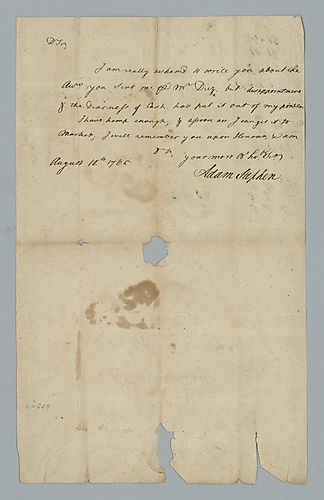 Dr Sr
I am really asham'd to write you about the
you sent me Mr Dick, but disappointments
& the Dearness of Cash has put it out of my power
I have hemp enough, & as soon as I can get it to
Market, I will remember you upon Honour, I am
Sr your most Obt
August 10th 1765
Adam Stephen